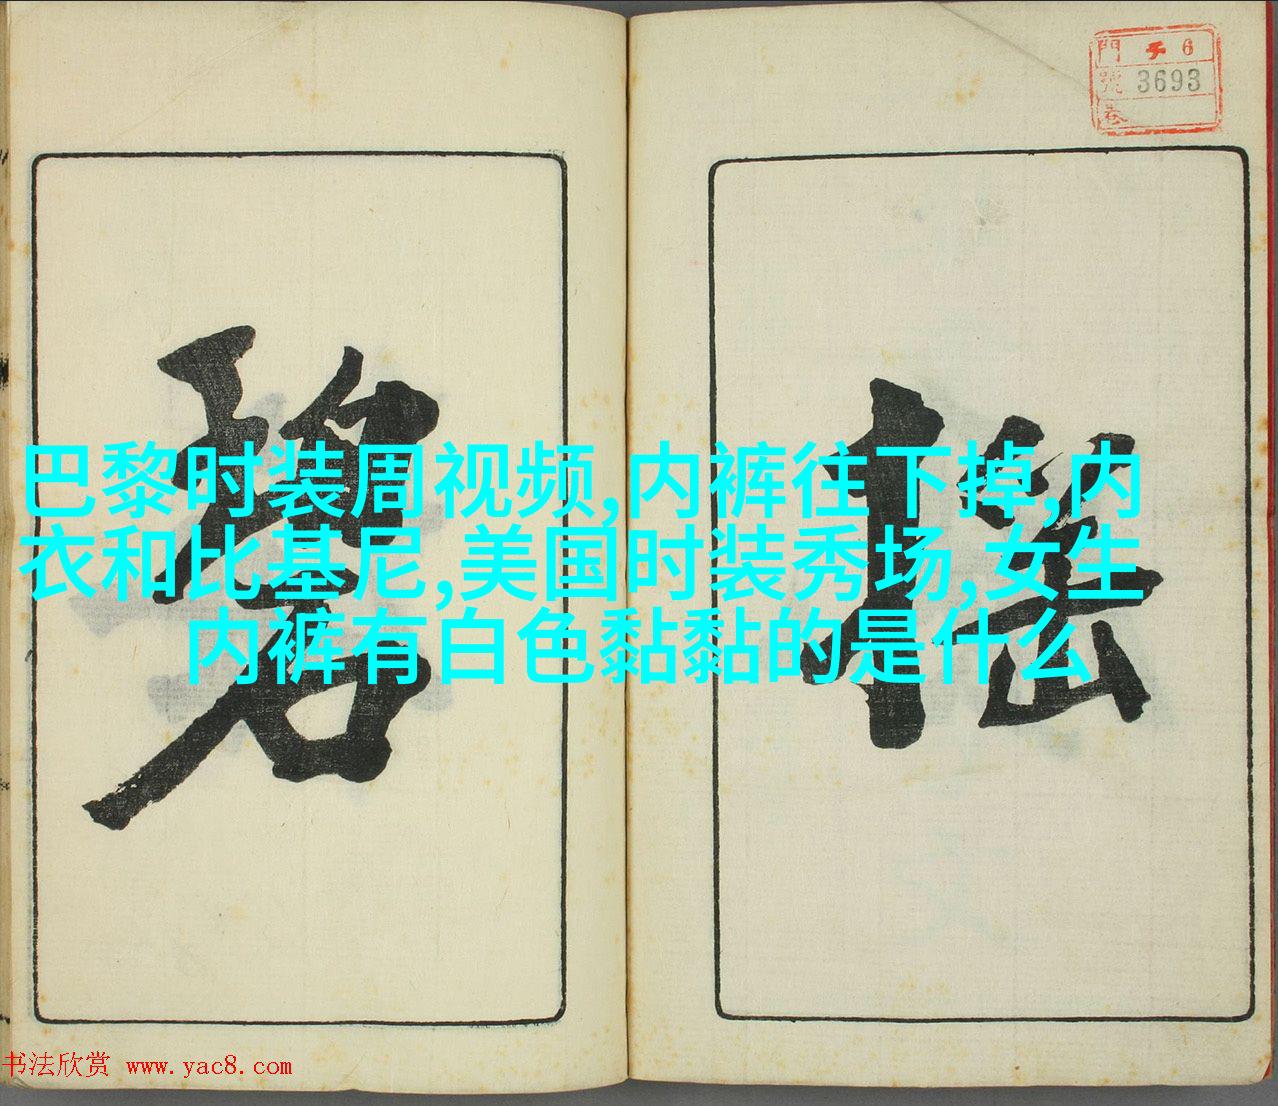 門 6
號 3693
卷
摇
碧
巴黎时装周视频,内裤往下掉,内
衣和比基尼,美国时装秀场,女生
内裤有白色黏黏的是什么
书法欣赏 www.yac8.com